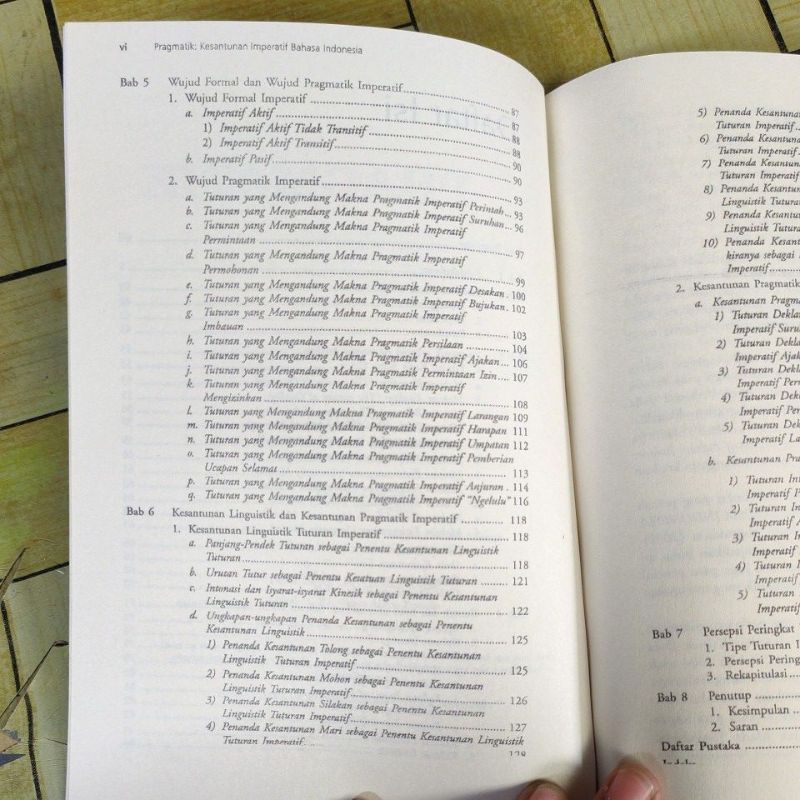 vi Pragmatik: Kesantunan Imperatif Bahasa Indonesia
Bab 5 Wujud Formal dan Wujud Pragmatik Imperatif 87
1. Wujud Formal Imperatif 87
a. Imperatif Aktif 88
1) Imperatif Aktif Tidak Transitif 88
2) Imperatif Aktif Transitif 90
b. Imperatif Pasif 90
2. Wujud Pragmatik Imperatif 93
a. Tuturan yang Mengandung Makna Pragmatik Imperatif Perintah 93
b. Tuturan yang Mengandung Makna Pragmatik Imperatif Suruhan 96
c. Tuturan yang Mengandung Makna Pragmatik Imperatif
Permintaan 97
d. Tuturan yang Mengandung Makna Pragmatik Imperatif
Permohonan 99
e. Tuturan yang Mengandung Makna Pragmatik Imperatif Desakan 100
f. Tuturan yang Mengandung Makna Pragmatik Imperatif Bujukan 102
g. Tuturan yang Mengandung Makna Pragmatik Imperatif
Imbauan 103
h. Tuturan yang Mengandung Makna Pragmatik Persilaan 104
i. Tuturan yang Mengandung Makna Pragmatik Imperatif Ajakan 106
j. Tuturan yang Mengandung Makna Pragmatik Permintaan Izin 107
k. Tuturan yang Mengandung Makna Pragmatik Imperatif
Mengizinkan 108
l. Tuturan yang Mengandung Makna Pragmatik Imperatif Larangan 109
m. Tuturan yang Mengandung Makna Pragmatik Imperatif Harapan 111
n. Tuturan yang Mengandung Makna Pragmatik Imperatif Umpatan 112
o. Tuturan yang Mengandung Makna Pragmatik Imperatif Pemberian
Ucapan Selamat 113
p. Tuturan yang Mengandung Makna Pragmatik Imperatif Anjuran 114
q. Tuturan yang Mengandung Makna Pragmatik Imperatif "Ngelulu" 116
Bab 6 Kesantunan Linguistik dan Kesantunan Pragmatik Imperatif 118
1. Kesantunan Linguistik Tuturan Imperatif 118
a. Panjang-Pendek Tuturan sebagai Penentu Kesantunan Linguistik
Tuturan 118
b. Urutan Tutur sebagai Penentu Kesatuan Linguistik Tuturan 121
c. Intonasi dan Isyarat-isyarat Kinesik sebagai Penentu Kesantunan
Linguistik Tuturan 122
d. Ungkapan-ungkapan Penanda Kesantunan sebagai Penentu
Kesantunan Linguistik 125
1) Penanda Kesantunan Tolong sebagai Penentu Kesantunan
Linguistik Tuturan Imperatif 125
2) Penanda Kesantunan Mohon sebagai Penentu Kesantunan
Linguistik Tuturan Imperatif 126
3) Penanda Kesantunan Silakan sebagai Penentu Kesantunan
Linguistik Tuturan Imperatif 127
4) Penanda Kesantunan Mari sebagai Penentu Kesantunan Linguistik
Tuturan Imperatif
5) Penanda Kesantunan
Tuturan Imperatif
6) Penanda Kesantunan
Tuturan Imperatif
7) Penanda Kesantunan
Tuturan Imperatif
8) Penanda Kesantunan
Linguistik Tuturan
9) Penanda
Linguistik
10) Penanda
kiranya sebagai
Imperatif
2. Kesantunan Pragmatik
a. Kesantunan
1) Tuturan
Imperatif
2) Tuturan
Imperatif
3) Tuturan
Imperatif
4) Tuturan
Imperatif
5) Tuturan
Imperatif
b. Kesantunan
1) Tuturan
Imperatif
2) Tuturan
Imperatif
3) Tuturan
Imperatif
4) Tuturan
Imperatif
5) Tuturan
Bab 7 Persepsi Peringkat
1. Tipe Tuturan
2. Persepsi
3. Rekapitulasi
Bab 8 Penutup
1. Kesimpulan
2. Saran
Daftar Pustaka